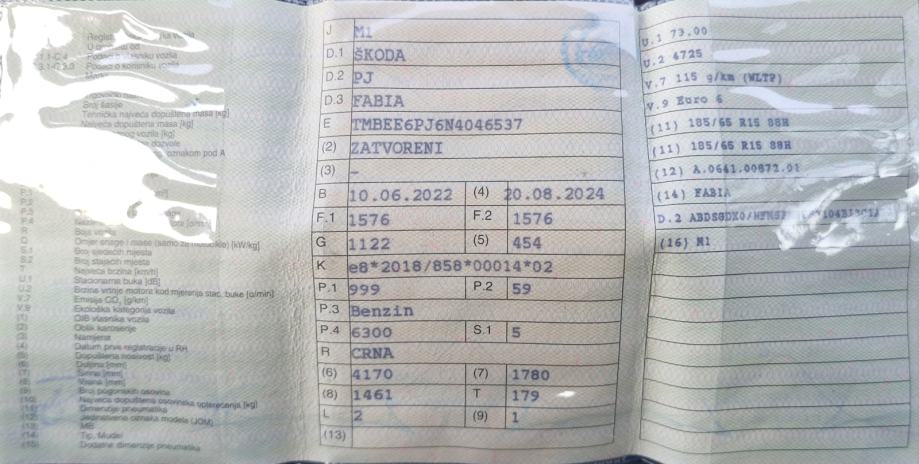 J M1
D.1 ŠKODA
D.2 PJ
D.3 FABIA
E TMBEE6PJ6N4046537
(2) ZATVORENI
(3) -
B 10.06.2022 (4) 20.08.2024
F.1 1576 F.2 1576
G 1122 (5) 454
K e8*2018/858*00014*02
P.1 999 P.2 59
P.3 Benzin
P.4 6300 S.1 5
R CRNA
(6) 4170 (7) 1780
(8) 1461 T 179
L 2 (9) 1
(13)
U.1 73,00
U.2 4725
V.7 115 g/km (WLTP)
V.9 Euro 6
(11) 185/65 R15 88H
(11) 185/65 R15 88H
(12) A.0641.00872.01
(14) FABIA
(16) M1
Broj šasije
Tehnička najveća dopuštena masa [kg]
Najveća dopuštena masa [kg]
oznakom pod A
Broj sjedećih mjesta
S.2 Broj stajaćih mjesta
T Najveća brzina [km/h]
U.1 Stacionarna buka [dB]
U.2 Brzina vrtnje motora kod mjerenja stac. buke [o/min]
V.7 Emisija CO₂ [g/km]
V.9 Ekološka kategorija vozila
(1) OIB vlasnika vozila
(2) Oblik karoserije
(3) Namjena
(4) Datum prve registracije u RH
(5) Dopuštena nosivost [kg]
(6) Duljina [mm]
(7) Širina [mm]
(8) Visina [mm]
(9) Broj pogonskih osovina
(10) Najveća dopuštena osovinska opterećenja [kg]
(11) Dimenzije pneumatika
(12) Jedinstvena oznaka modela (JOM)
(13) MB
(14) Tip, Model
(15) Dodatne dimenzije pneumatika